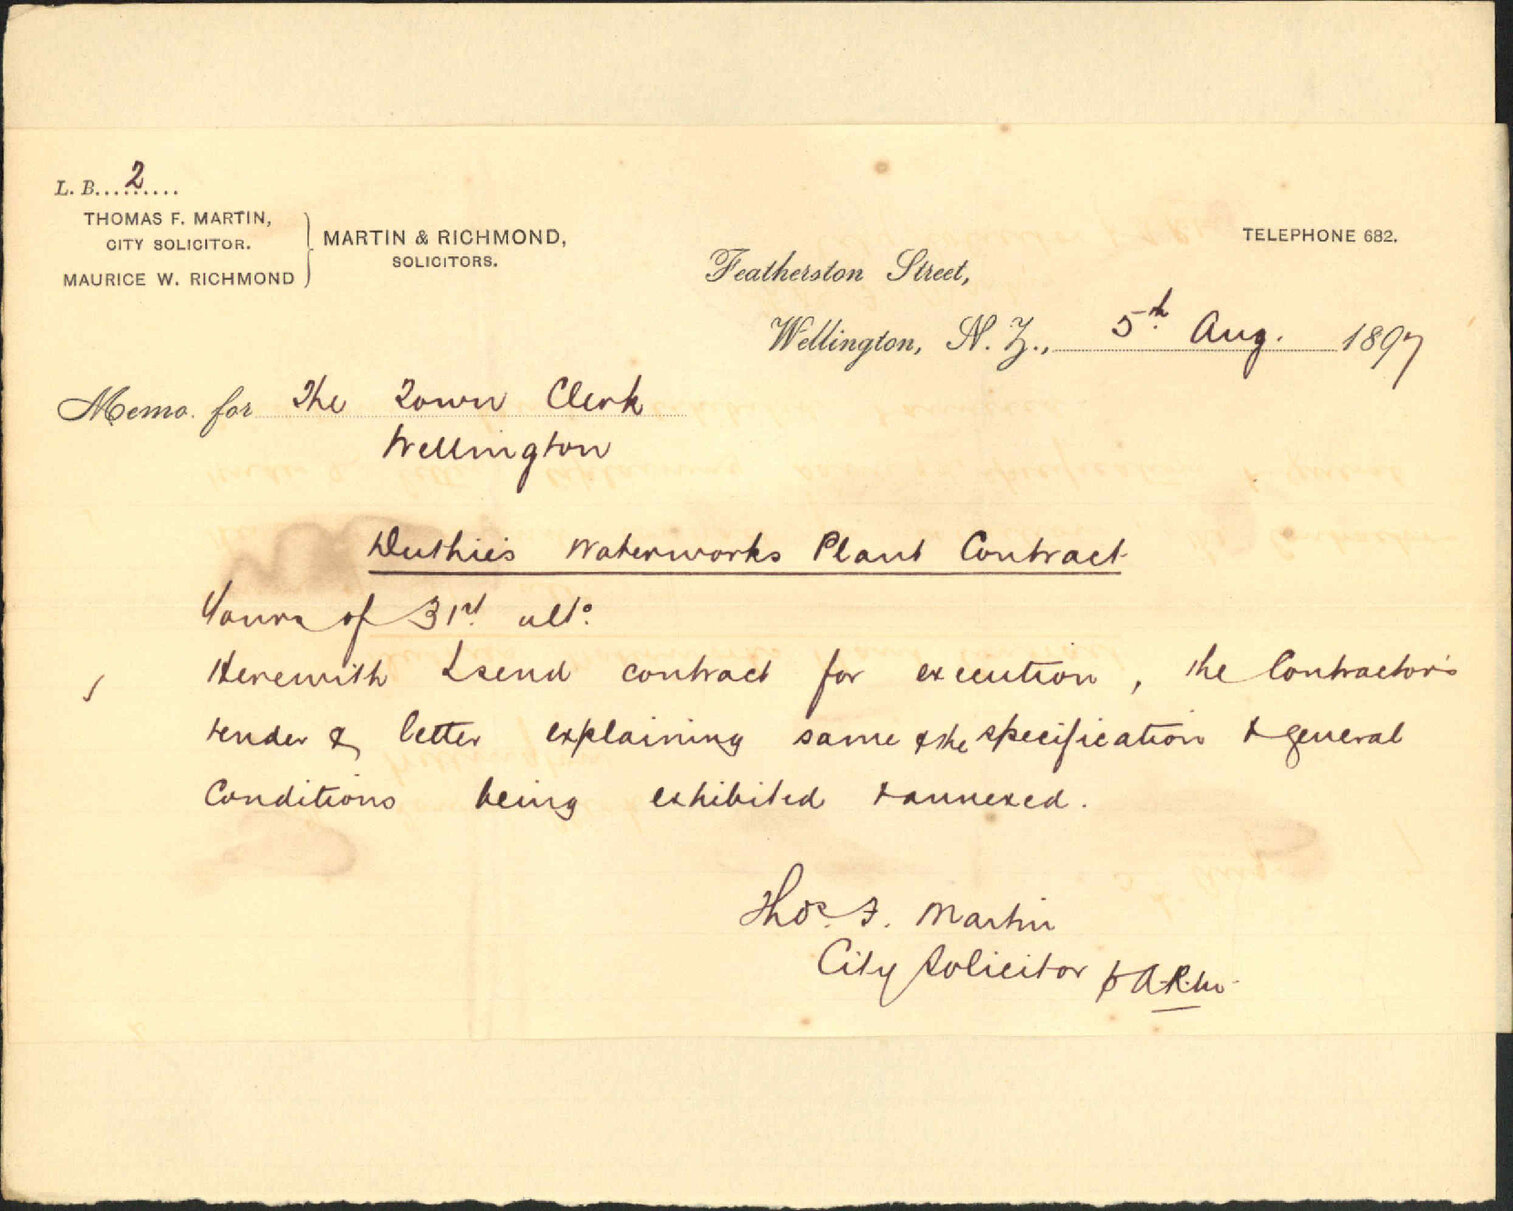 L. B. 2
THOMAS F. MARTIN,
CITY SOLICITOR.
MAURICE W. RICHMOND
MARTIN & RICHMOND,
SOLICITORS.
TELEPHONE 682.
Featherston Street,
Wellington, N. Z., 5th Aug. 1897
Memo. for The Town Clerk
Wellington
Duthie's Waterworks Plant Contract
Yours of 31st ulto.
Herewith I send contract for execution, the Contractor's
tender & letter explaining same & the specification & general
Conditions being exhibited & annexed.
Thos. F. Martin
City Solicitor